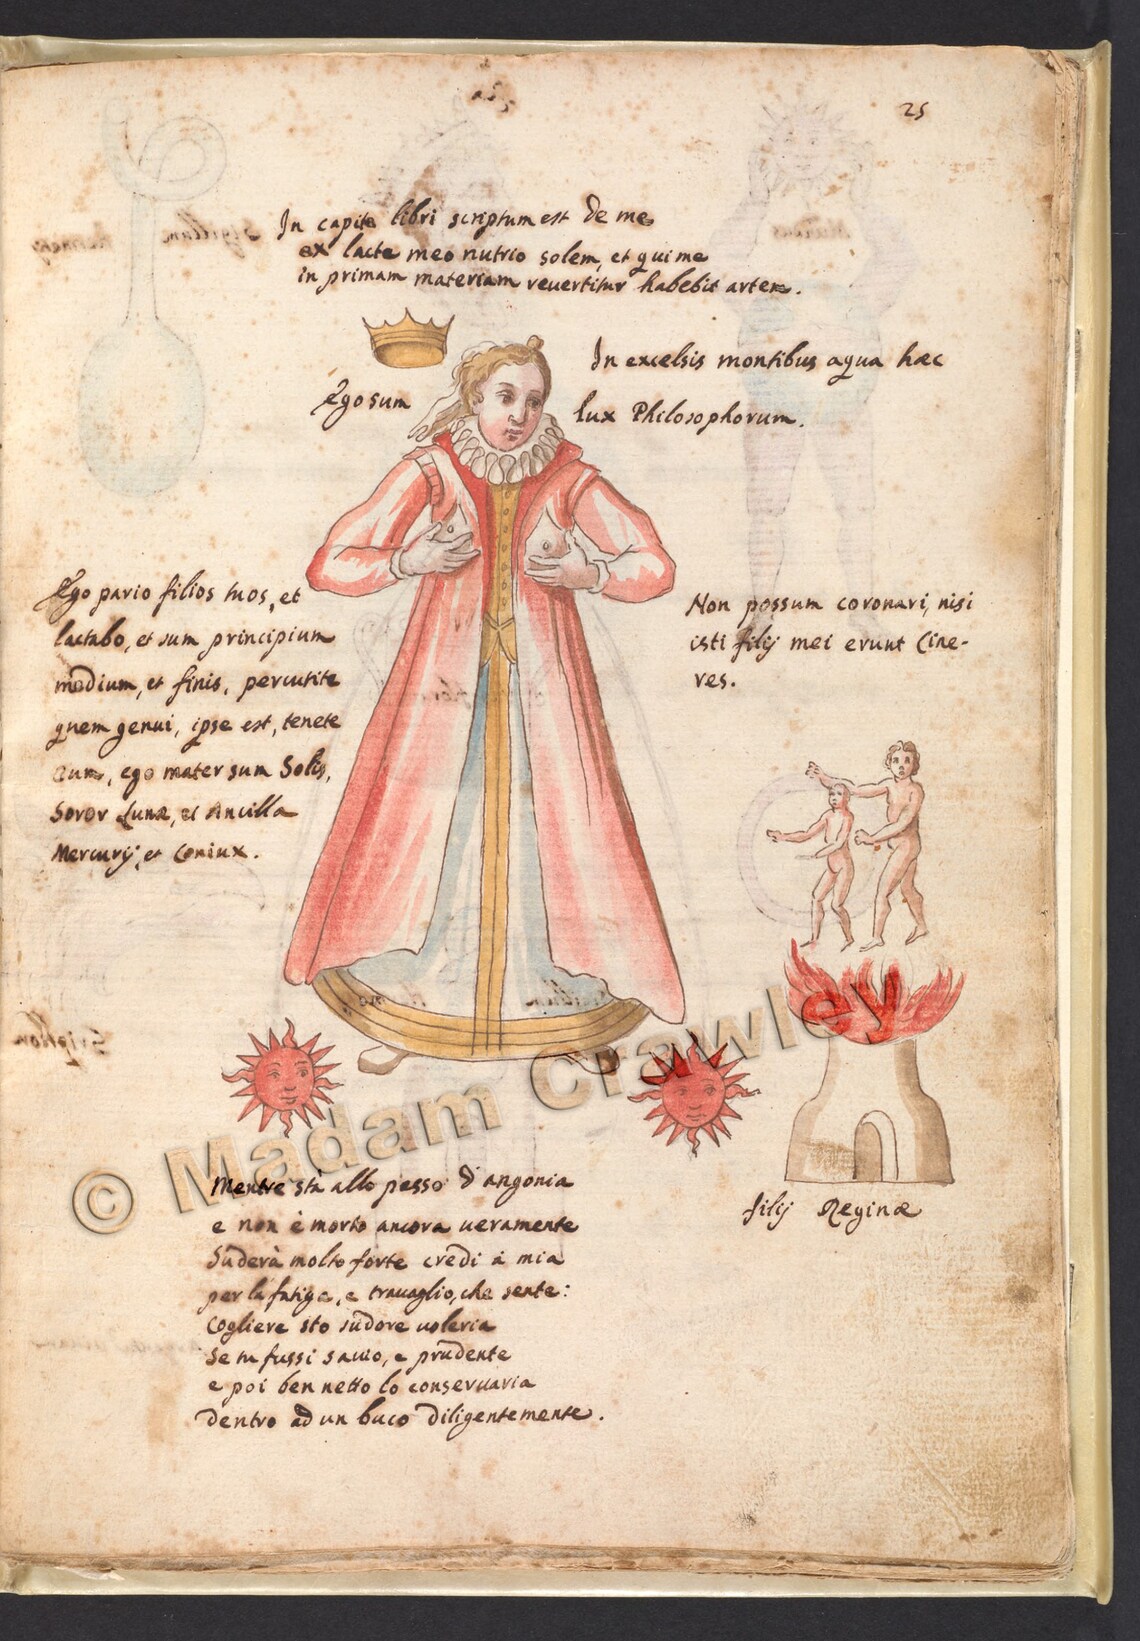 25
In capite libri scriptum est De me
ex lacte meo nutrio solem, et qui me
in primam materiam revertitur habebit artem.
In excelsis montibus aqua haec
Ego sum
lux Philosophorum.
Ego pario filios tuos, et
lactabo, et sum principium
medium, et finis, percutite
quem genui, ipse est, tenete
eum, ego mater sum Solis,
Soror Lunæ, et Ancilla
Mercurij et Coniux.
Non possum coronari, nisi
isti filij mei erunt Cine-
res.
filij Reginæ
Mentre stà allo pesso d'angonia
e non è morto ancora ueramente
Suderà molto forte credi à mia
per la fatiga, e trauaglio, che sente:
Cogliere sto sudore uoleria
Se tu fussi sauio, e prudente
e poi ben netto lo conseruaria
dentro ad un buco diligentemente.
© Madam Crawley